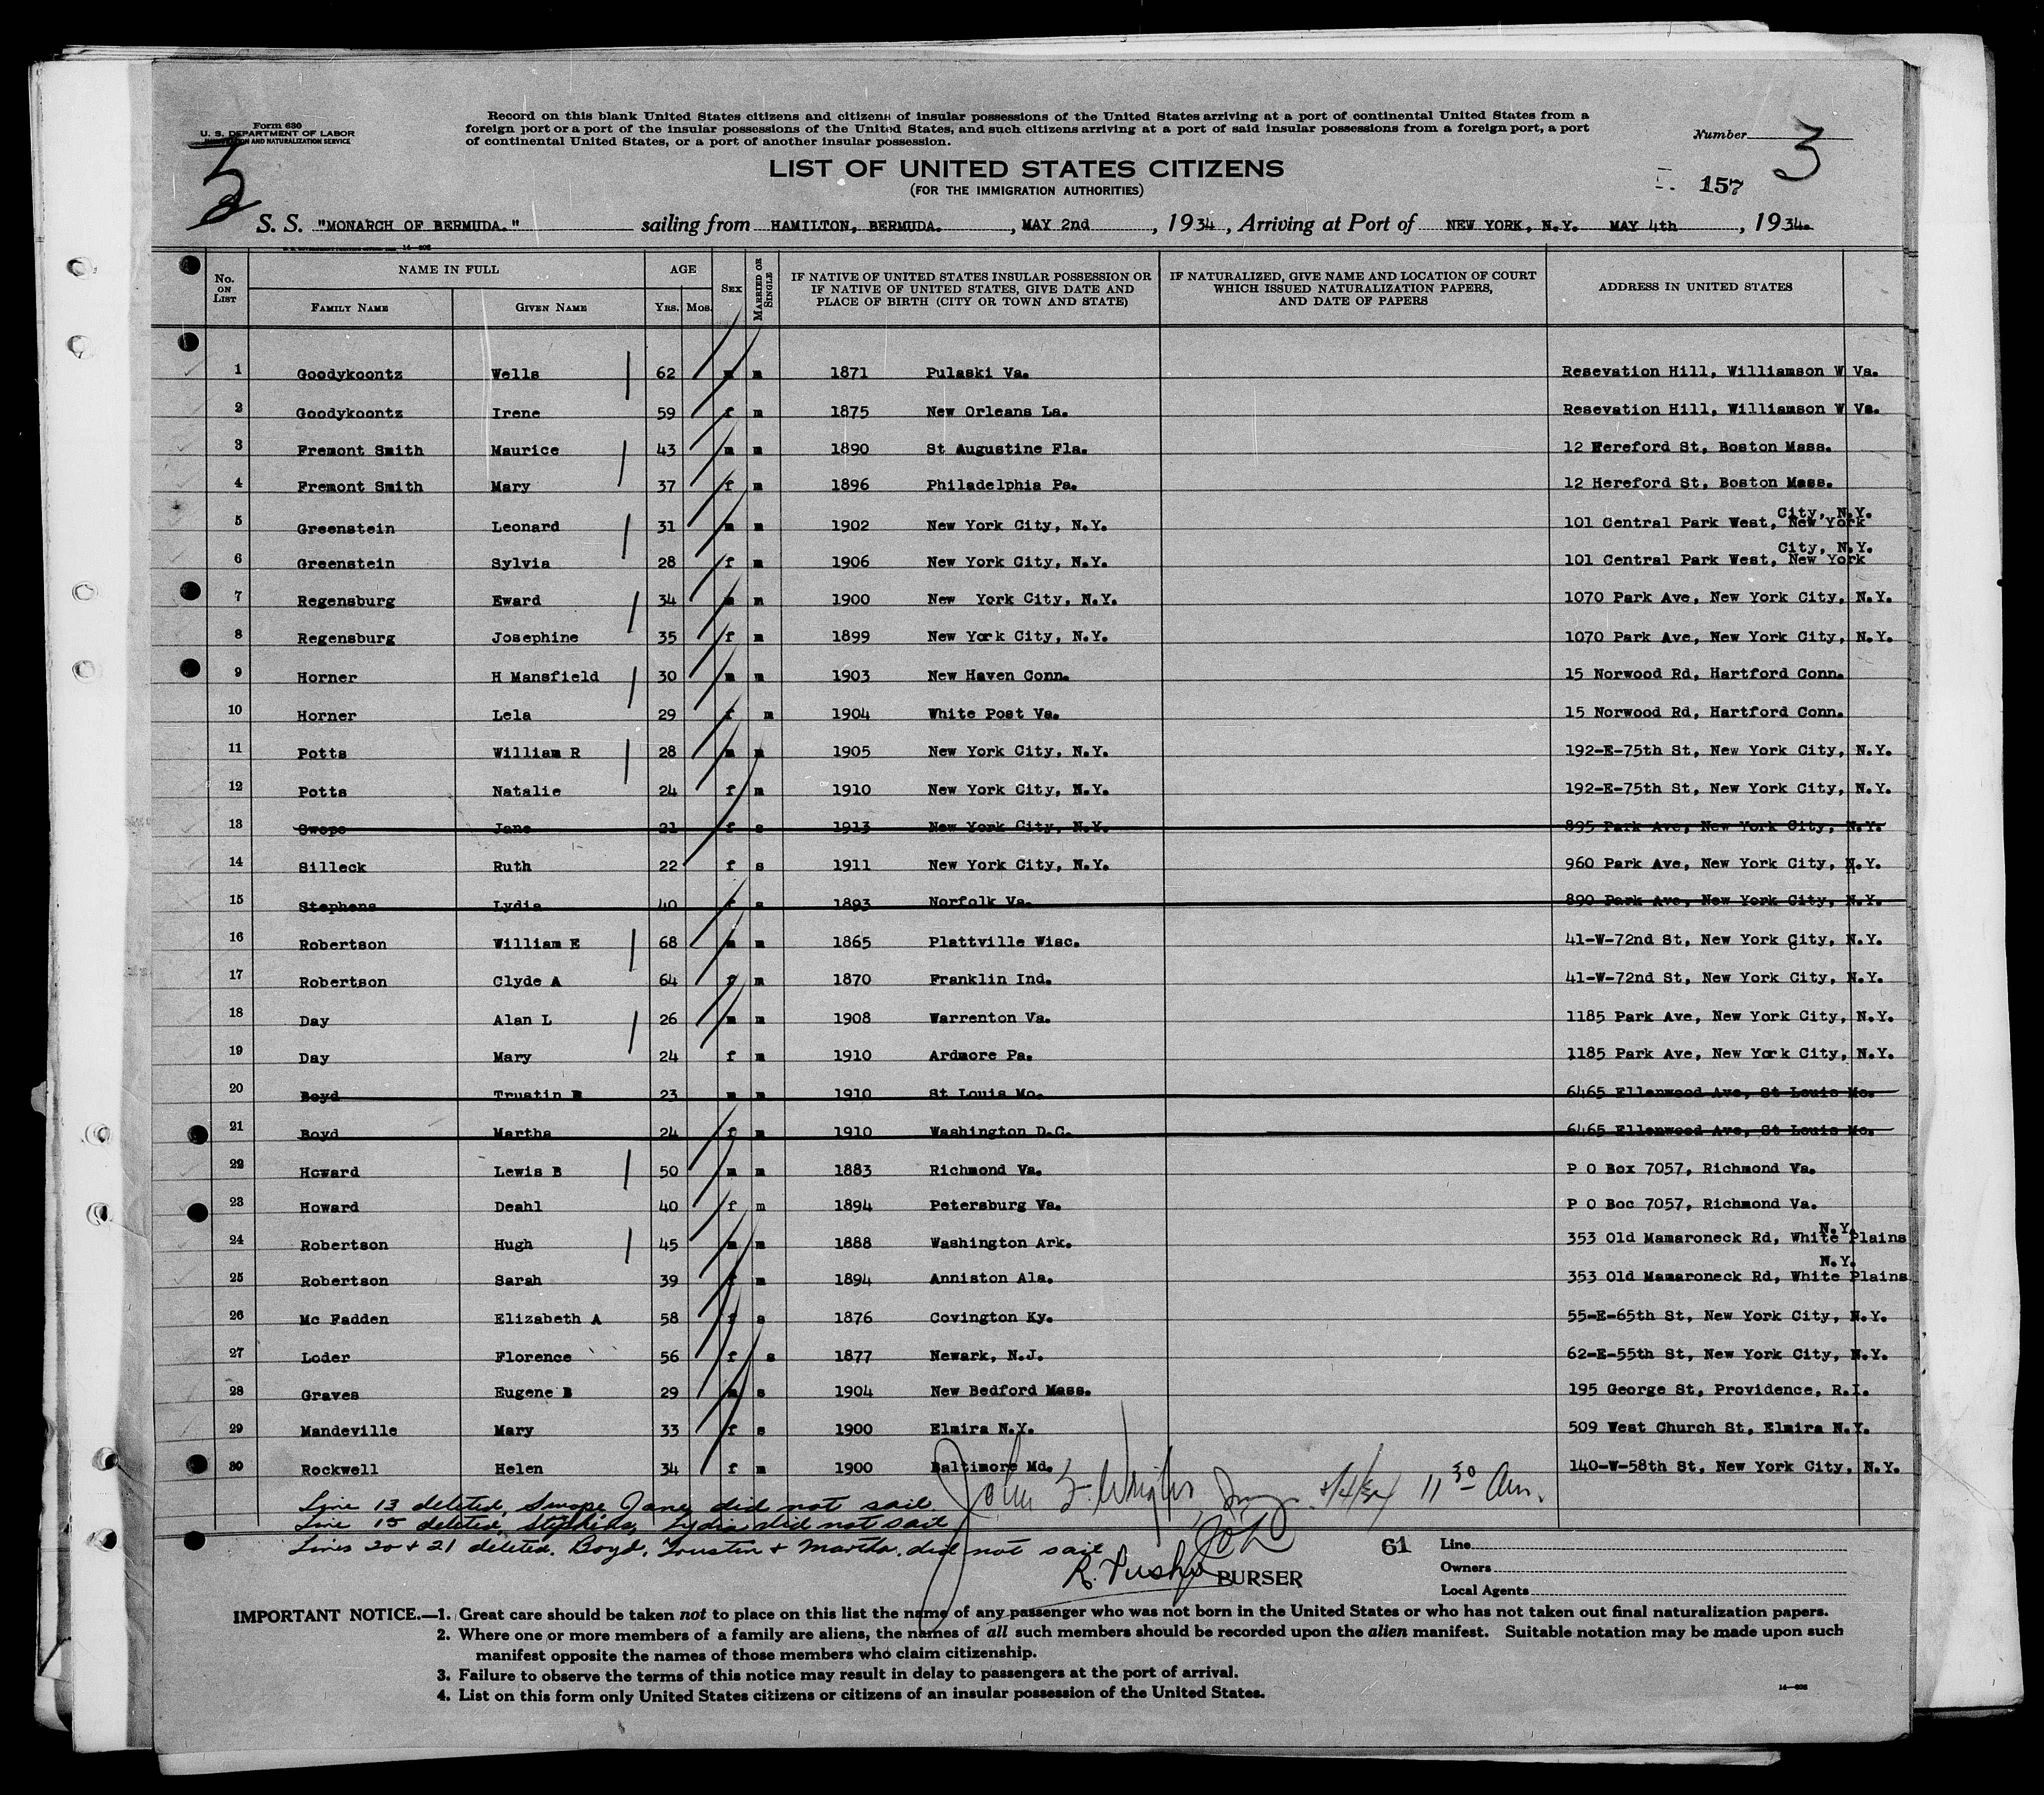 Form 630
U. S. DEPARTMENT OF LABOR
IMMIGRATION AND NATURALIZATION SERVICE
Record on this blank United States citizens and citizens of insular possessions of the United States arriving at a port of continental United States from a
foreign port or a port of the insular possessions of the United States, and such citizens arriving at a port of said insular possessions from a foreign port, a port
of continental United States, or a port of another insular possession.
Number 3
LIST OF UNITED STATES CITIZENS
(FOR THE IMMIGRATION AUTHORITIES)
157
S. S. "MONARCH OF BERMUDA." sailing from HAMILTON, BERMUDA. , MAY 2nd , 1934 , Arriving at Port of NEW YORK, N.Y. MAY 4th , 1934.
No. ON LIST NAME IN FULL AGE SEX MARRIED OR SINGLE IF NATIVE OF UNITED STATES INSULAR POSSESSION OR IF NATIVE OF UNITED STATES, GIVE DATE AND PLACE OF BIRTH (CITY OR TOWN AND STATE) IF NATURALIZED, GIVE NAME AND LOCATION OF COURT WHICH ISSUED NATURALIZATION PAPERS, AND DATE OF PAPERS ADDRESS IN UNITED STATES
FAMILY NAME GIVEN NAME YRS. MOS.
1 Goodykoontz Wells 62 m m 1871 Pulaski Va. Resevation Hill, Williamson W Va.
2 Goodykoontz Irene 59 f m 1875 New Orleans La. Resevation Hill, Williamson W Va.
3 Fremont Smith Maurice 43 m m 1890 St Augustine Fla. 12 Hereford St, Boston Mass.
4 Fremont Smith Mary 37 f m 1896 Philadelphia Pa. 12 Hereford St, Boston Mass.
5 Greenstein Leonard 31 m m 1902 New York City, N.Y. 101 Central Park West, New York City, N.Y.
6 Greenstein Sylvia 28 f m 1906 New York City, N.Y. 101 Central Park West, New York City, N.Y.
7 Regensburg Eward 34 m m 1900 New York City, N.Y. 1070 Park Ave, New York City, N.Y.
8 Regensburg Josephine 35 f m 1899 New York City, N.Y. 1070 Park Ave, New York City, N.Y.
9 Horner H Mansfield 30 m m 1903 New Haven Conn. 15 Norwood Rd, Hartford Conn.
10 Horner Lela 29 f m 1904 White Post Va. 15 Norwood Rd, Hartford Conn.
11 Potts William R 28 m m 1905 New York City, N.Y. 192-E-75th St, New York City, N.Y.
12 Potts Natalie 24 f m 1910 New York City, N.Y. 192-E-75th St, New York City, N.Y.
13 Swope Jane 21 f s 1913 New York City, N.Y. 895 Park Ave, New York City, N.Y.
14 Silleck Ruth 22 f s 1911 New York City, N.Y. 960 Park Ave, New York City, N.Y.
15 Stephens Lydia 40 f s 1893 Norfolk Va. 890 Park Ave, New York City, N.Y.
16 Robertson William E 68 m m 1865 Plattville Wisc. 41-W-72nd St, New York City, N.Y.
17 Robertson Clyde A 64 f m 1870 Franklin Ind. 41-W-72nd St, New York City, N.Y.
18 Day Alan L 26 m m 1908 Warrenton Va. 1185 Park Ave, New York City, N.Y.
19 Day Mary 24 f m 1910 Ardmore Pa. 1185 Park Ave, New York City, N.Y.
20 Boyd Trustin B 23 m m 1910 St Louis Mo. 6465 Ellenwood Ave, St Louis Mo.
21 Boyd Martha 24 f m 1910 Washington D.C. 6465 Ellenwood Ave, St Louis Mo.
22 Howard Lewis B 50 m m 1883 Richmond Va. P O Box 7057, Richmond Va.
23 Howard Deahl 40 f m 1894 Petersburg Va. P O Boc 7057, Richmond Va.
24 Robertson Hugh 45 m m 1888 Washington Ark. 353 Old Mamaroneck Rd, White Plains N.Y.
25 Robertson Sarah 39 f m 1894 Anniston Ala. 353 Old Mamaroneck Rd, White Plains N.Y.
26 Mc Fadden Elizabeth A 58 f s 1876 Covington Ky. 55-E-65th St, New York City, N.Y.
27 Loder Florence 56 f s 1877 Newark, N.J. 62-E-55th St, New York City, N.Y.
28 Graves Eugene B 29 m s 1904 New Bedford Mass. 195 George St, Providence, R.I.
29 Mandeville Mary 33 f s 1900 Elmira N.Y. 509 West Church St, Elmira N.Y.
30 Rockwell Helen 34 f m 1900 Baltimore Md. 140-W-58th St, New York City, N.Y.
Line 13 deleted, Swope Jane did not sail.
Line 15 deleted, Stephens, Lydia did not sail
Lines 20 & 21 deleted. Boyd, Trustin & Martha. did not sail
John Wright 5/4/34 11 30 Am.
PURSER
61
Line
Owners
Local Agents
IMPORTANT NOTICE.—1. Great care should be taken not to place on this list the name of any passenger who was not born in the United States or who has not taken out final naturalization papers.
2. Where one or more members of a family are aliens, the names of all such members should be recorded upon the alien manifest. Suitable notation may be made upon such
manifest opposite the names of those members who claim citizenship.
3. Failure to observe the terms of this notice may result in delay to passengers at the port of arrival.
4. List on this form only United States citizens or citizens of an insular possession of the United States.